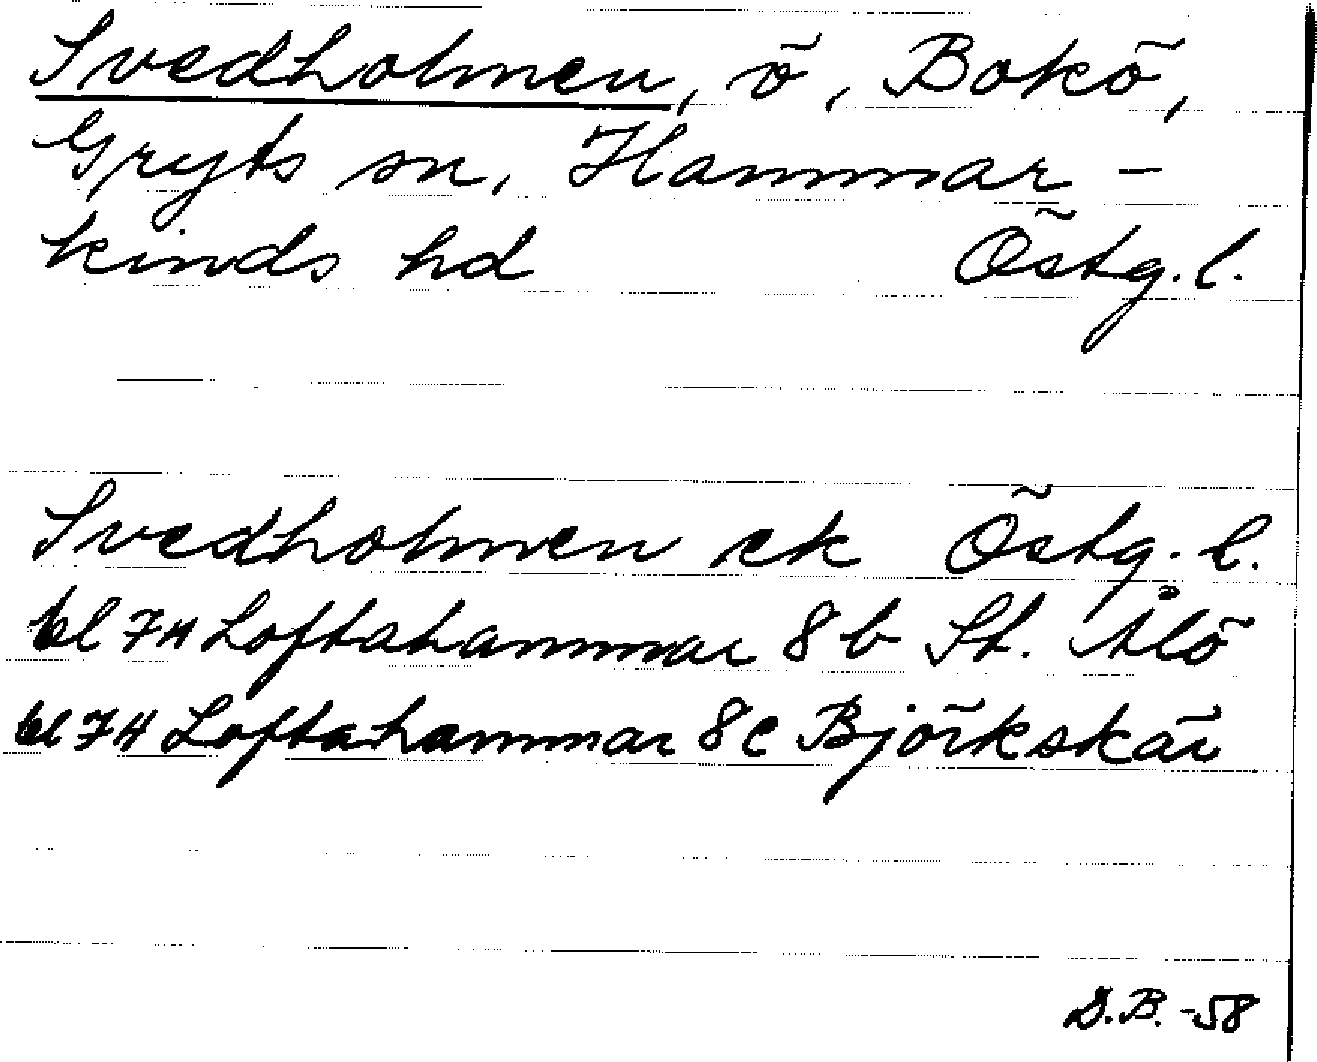 Svedholmen, ö, Bokö,
Gryts sn, Hammar-
kinds hd Östg. l.
Svedholmen ek Östg. l.
bl 74 Loftahammar 8 b St. Ålö
bl 74 Loftahammar 8 c Björkskär
D.B. -58